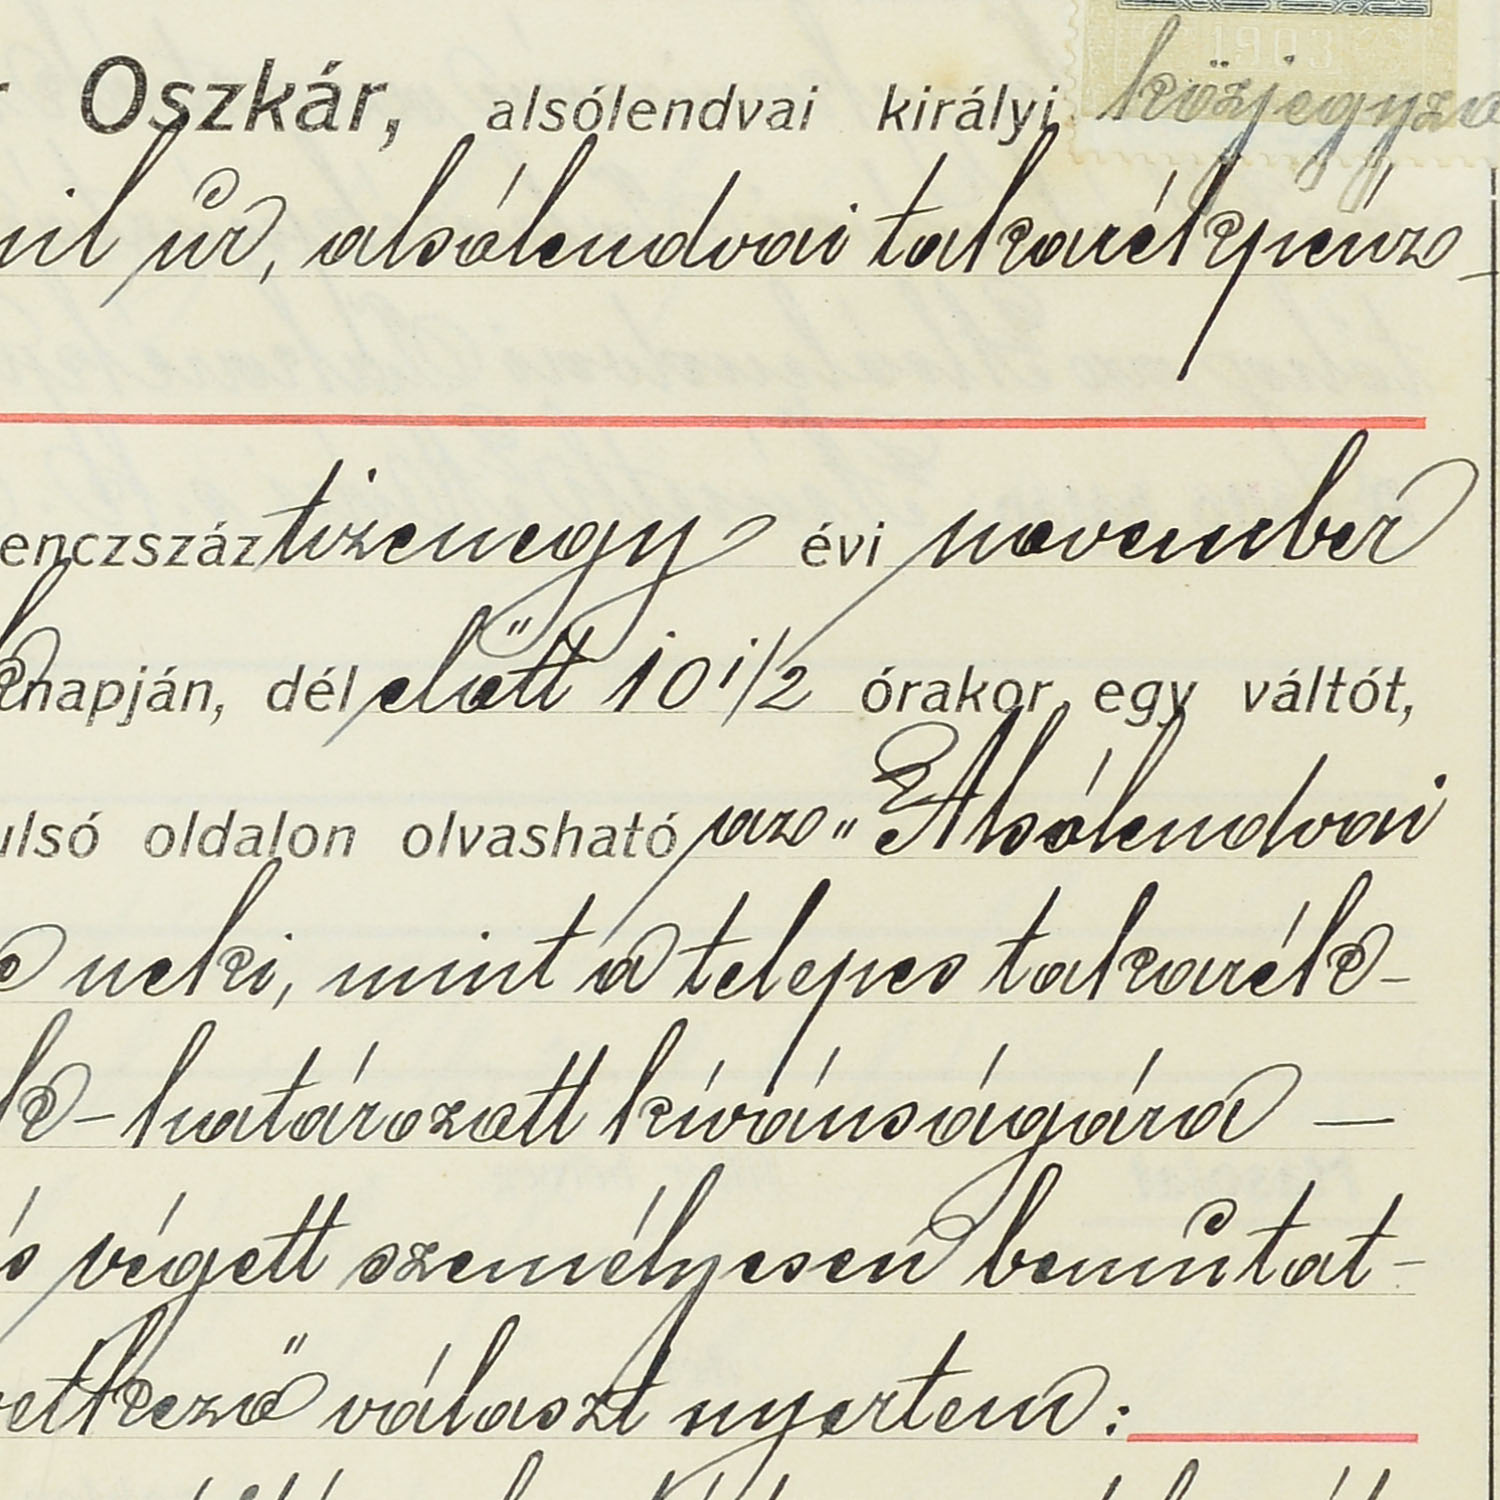 Oszkár, alsólendvai királyi közjegyző
1903
úr, alsólendvai takarékpénz-
enczszáz tizenegy évi november
napján, délelőtt 10 1/2 órakor egy váltót,
ulsó oldalon olvasható az "Alsólendvai
neki, mint a telepes takarék-
k - határozott kívánságára —
s végett személyesen bemutat-
vetkező választ nyertem: